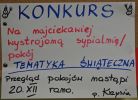 KONKURS
Na najciekawiej
wystrojoną sypialnię/
pokój
TEMATYKA ŚWIĄTECZNA
Przegląd pokojów nastąpi
20.XII rano, p.